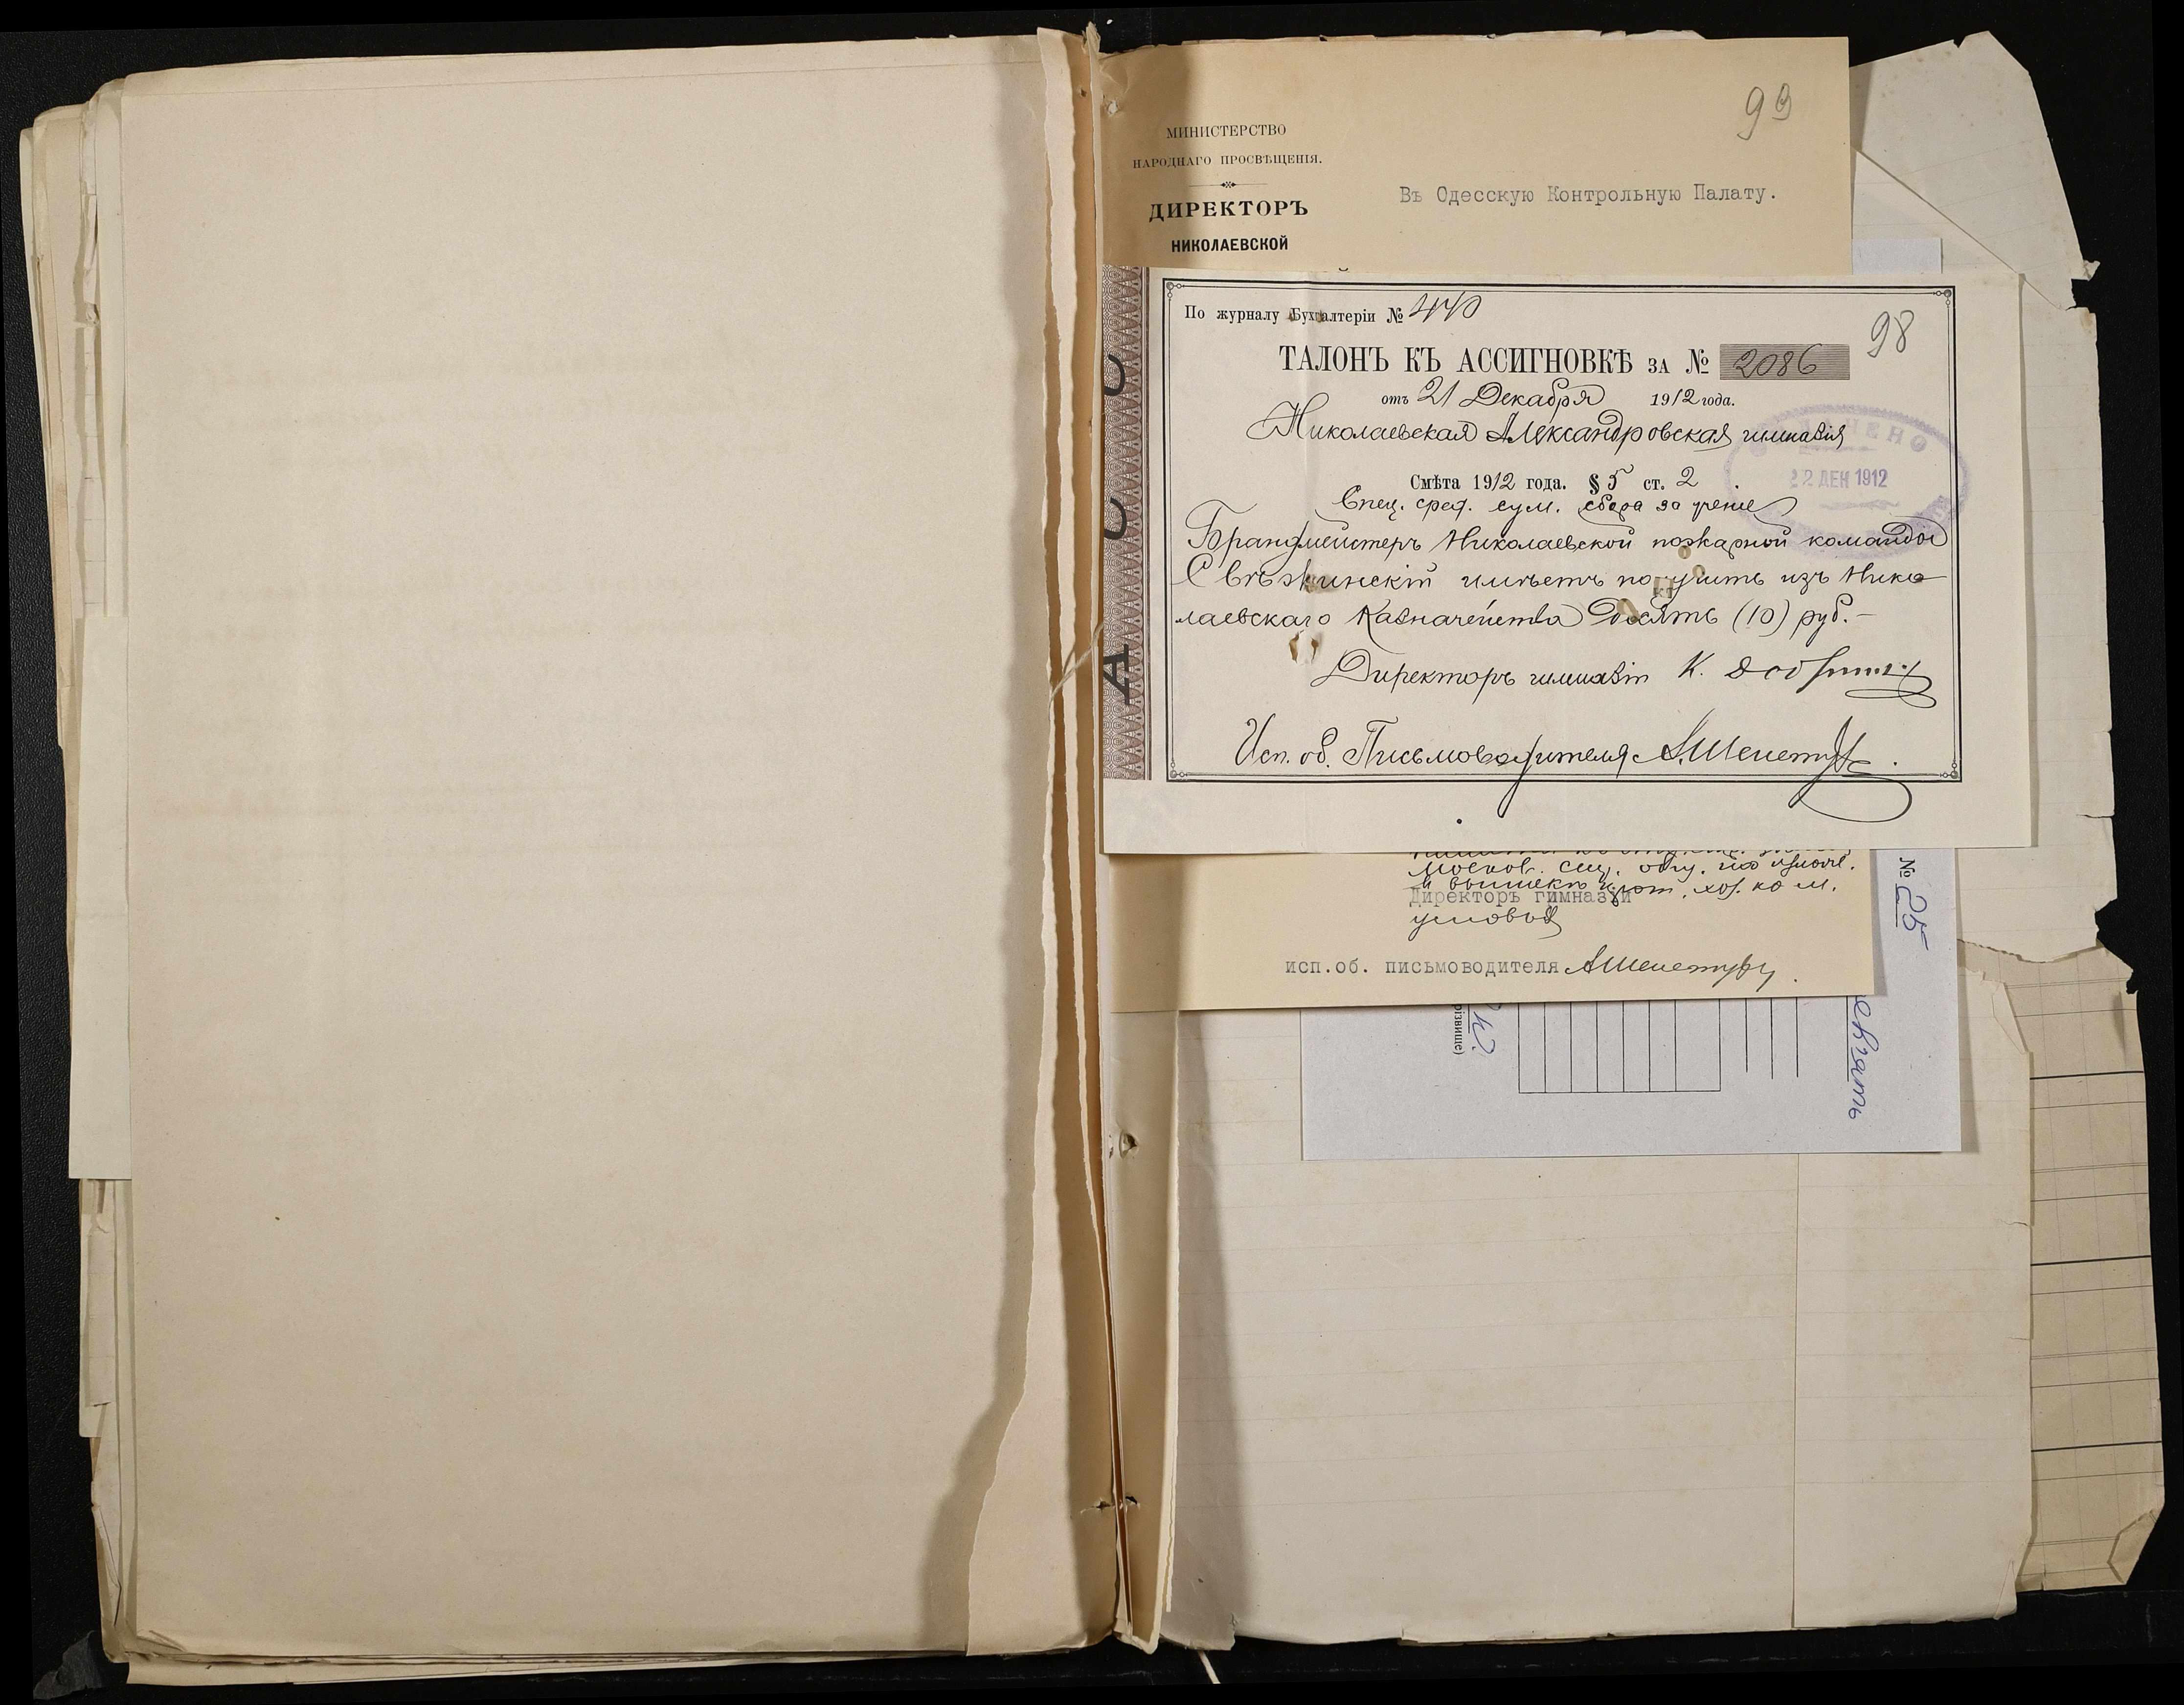 99
МИНИСТЕРСТВО
НАРОДНАГО ПРОСВѢЩЕНІЯ.
ДИРЕКТОРЪ
НИКОЛАЕВСКОЙ
Въ Одесскую Контрольную Палату.
По журналу Бухгалтеріи № 440
98
ТАЛОНЪ КЪ АССИГНОВКѢ ЗА № 2086
отъ 21 Декабря 1912 года.
Николаевская Александровская гимназія
22 ДЕК 1912
Смѣта 1912 года. § 5 ст. 2
Спец. сред. сум. сбора за ученіе
Брандмейстеръ Николаевской пожарной команды
Свѣжинскій имѣетъ получить изъ Нико
лаевскаго Казначейства Десять (10) руб.-
Директоръ гимназіи К.
Исп. об. Письмоводителя
Директоръ гимназіи
условія
исп.об. письмоводителя
№ 25
різвище)
евять